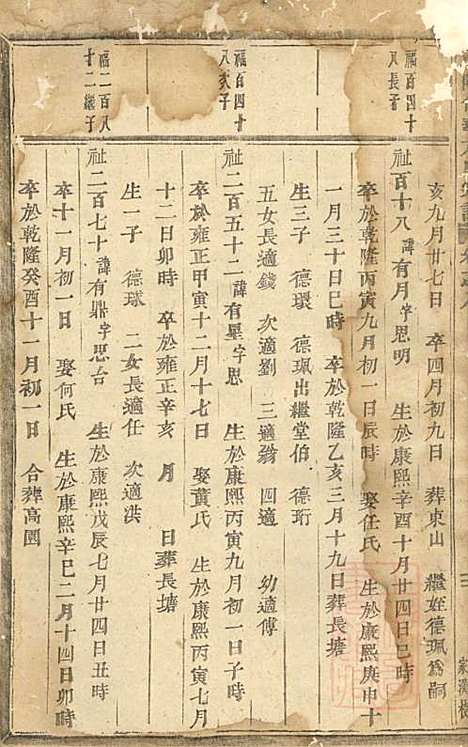 亥九月廿七日　卒四月初九日　葬東山　繼姪德珮爲嗣
福百四十
八長子
祉百十八諱有月字思明　生於康熙辛酉十月廿四日巳時
卒於乾隆丙寅九月初一日辰時　娶任氏　生於康熙庚申十
一月三十日巳時　卒於乾隆乙亥三月十九日葬長塘
生三子　德環　德珮出繼堂伯　德珩
五女長適錢　次適劉　三適翁　四適　幼適傅
福百四十
八次子
祉二百五十二諱有星字思　生於康熙丙寅九月初一日子時
卒於雍正甲寅十二月十七日　娶黃氏　生於康熙丙寅七月
十二日卯時　卒於雍正辛亥　月　日葬長塘
生一子　德球　二女長適任　次適洪
福二百八
十二繼子
祉二百七十諱有鼎字思台　生於康熙戊辰七月廿四日丑時
卒十一月初一日　娶何氏　生於康熙辛巳二月十四日卯時
卒於乾隆癸酉十一月初一日　合葬高園